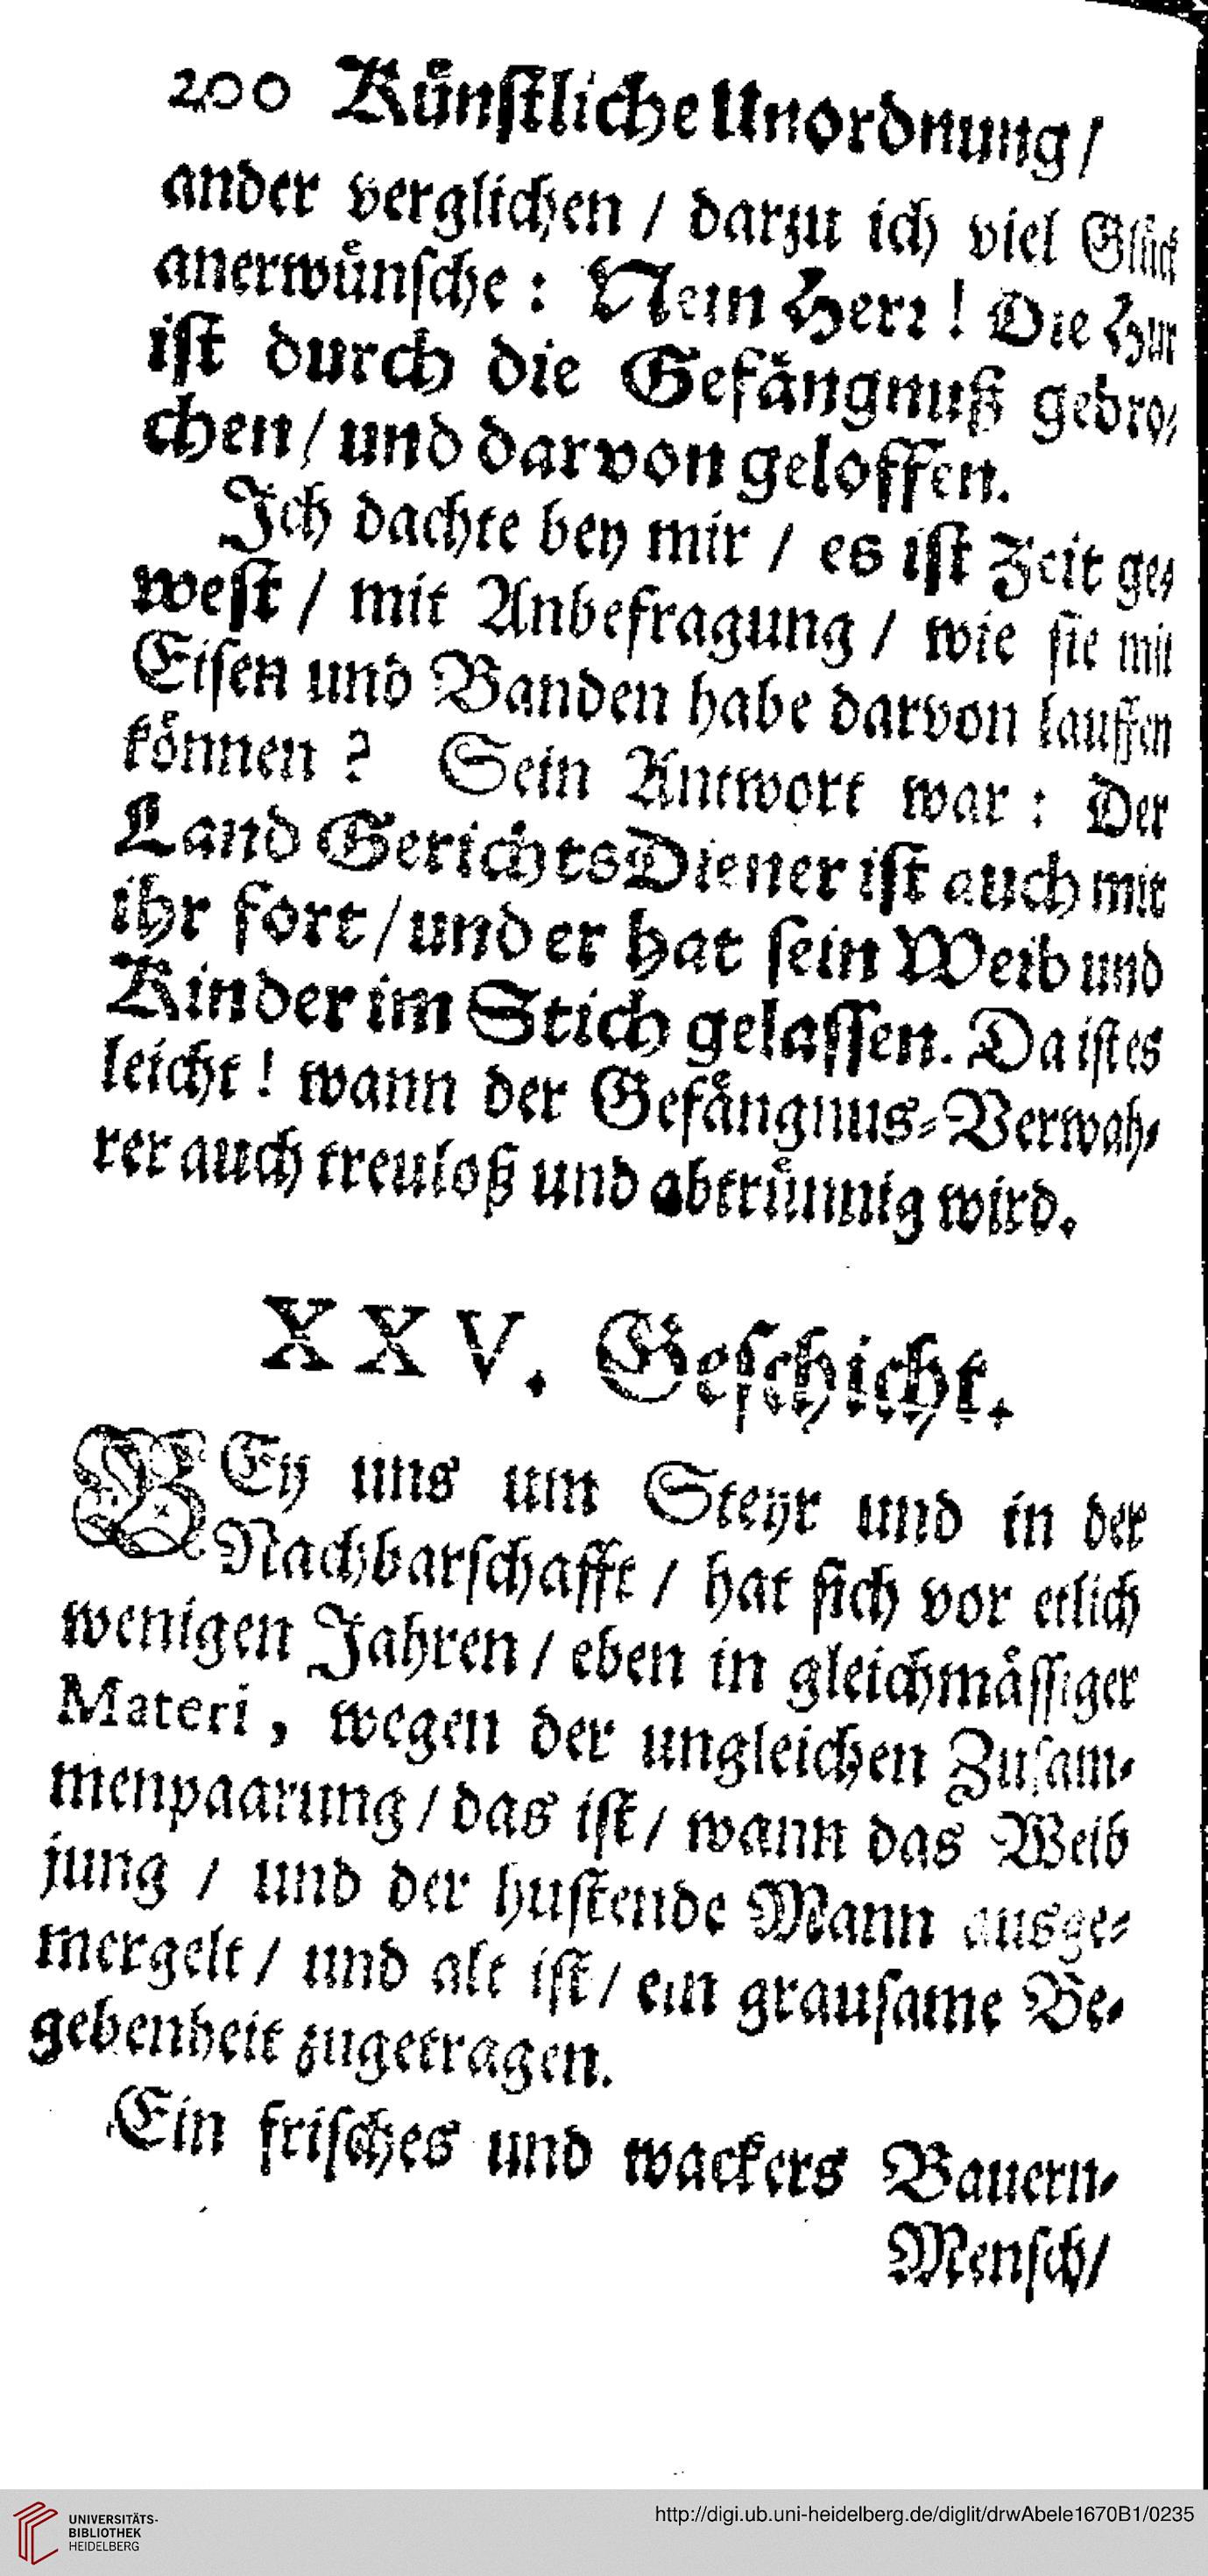 200 Künſtliche Unordnung/
ander verglichen / darzu ich viel Glück
anerwünſche: Nein Herr! Die Hur
iſt durch die Gefängnuß gebro-
chen/ und darvon geloffen.
Ich dachte bey mir / es iſt Zeit ge-
weſt / mit Anbefragung / wie ſie mit
Eiſen und Banden habe darvon lauffen
können? Sein Antwort war: Der
Land GerichtsDiener iſt auch mit
ihr fort/ und er hat ſein Weib und
Kinder im Stich gelaſſen. Da iſt es
leicht! wann der Gefängnus-Verwah-
rer auch treuloß und abtrünnig wird.
XXV. Geſchicht.
BEy uns um Steyr und in der
Nachbarſchafft / hat ſich vor etlich
wenigen Jahren / eben in gleichmäſſiger
Materi, wegen der ungleichen Zuſam-
menpaarung / das iſt / wann das Weib
jung / und der huſtende Mann ausge-
mergelt / und alt iſt / ein grauſame Be-
gebenheit zugetragen.
Ein friſches und wackers Bauern-
Menſch/
UNIVERSITÄTS-
BIBLIOTHEK
HEIDELBERG
http://digi.ub.uni-heidelberg.de/diglit/drwAbele1670B1/0235